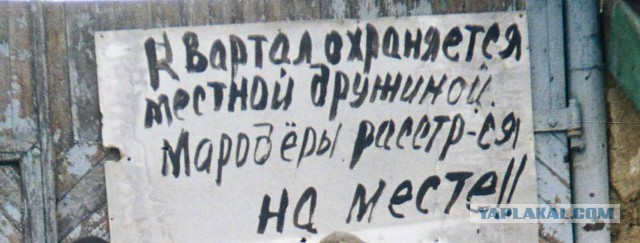 Квартал охраняется
местной дружиной.
Мародёры расстр-ся
на месте!!
YAPLAKAL.COM